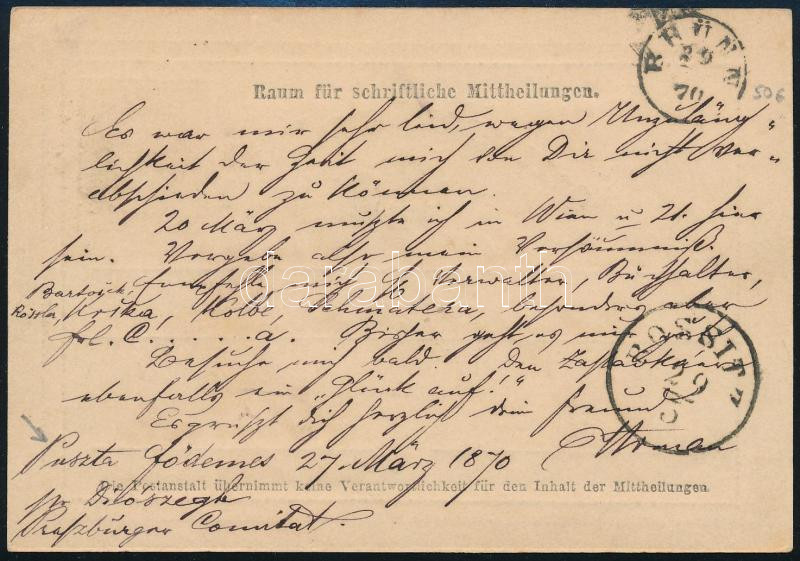 BRÜNN
29
70
506
Raum für schriftliche Mittheilungen.
Es war mir sehr leid, wegen Unzuläng-
lichkeit der Zeit mich von Dir nicht ver-
abschieden zu können.
20 März mußte ich in Wien u 21. hier
sein. Vergebe also mein Versäumniß.
Empfehle mich H Verwalter, Buchhalter,
Kolbe besonders aber
Frl. C......a. Bisher geht es mir
Besuche mich bald. Den
ebenfalls ein "Glück auf!"
Es grüßt dich herzlich dein Freund
ROSSITZ
29
Puszta Födemes 27 März 1870
Die Postanstalt übernimmt keine Verantwortlichkeit für den Inhalt der Mittheilungen.
pr Dioszegh
Preszburger Comitat.
darabanth